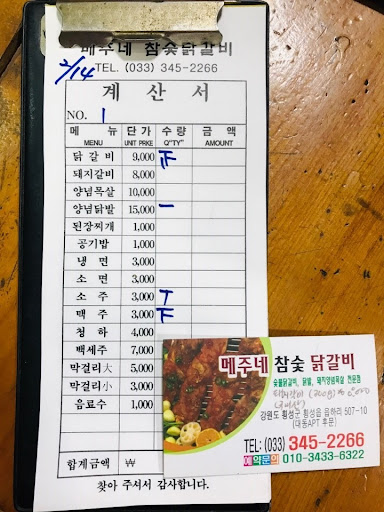 메주네 참숯닭갈비
2/14
TEL. (033) 345-2266
계 산 서
NO. 1
메 뉴 단 가 수 량 금 액
MENU UNIT PRKE Q"TY" AMOUNT
닭 갈 비 9,000 正
돼지갈비 8,000
양념목살 10,000
양념닭발 15,000 一
된장찌개 1,000
공기밥 1,000
냉 면 3,000
소 면 3,000
소 주 3,000 T
맥 주 3,000 F
청 하 4,000
백세주 7,000
막걸리大 5,000
막걸리小 3,000
음료수 1,000
합계금액 ₩
찾아 주셔서 감사합니다.
메주네 참숯 닭갈비
숯불닭갈비, 닭발, 돼지양념목살 전문점
강원도 횡성군 횡성읍 읍하리 507-10
(대동APT 후문)
TEL: (033) 345-2266
예약문의 010-3433-6322